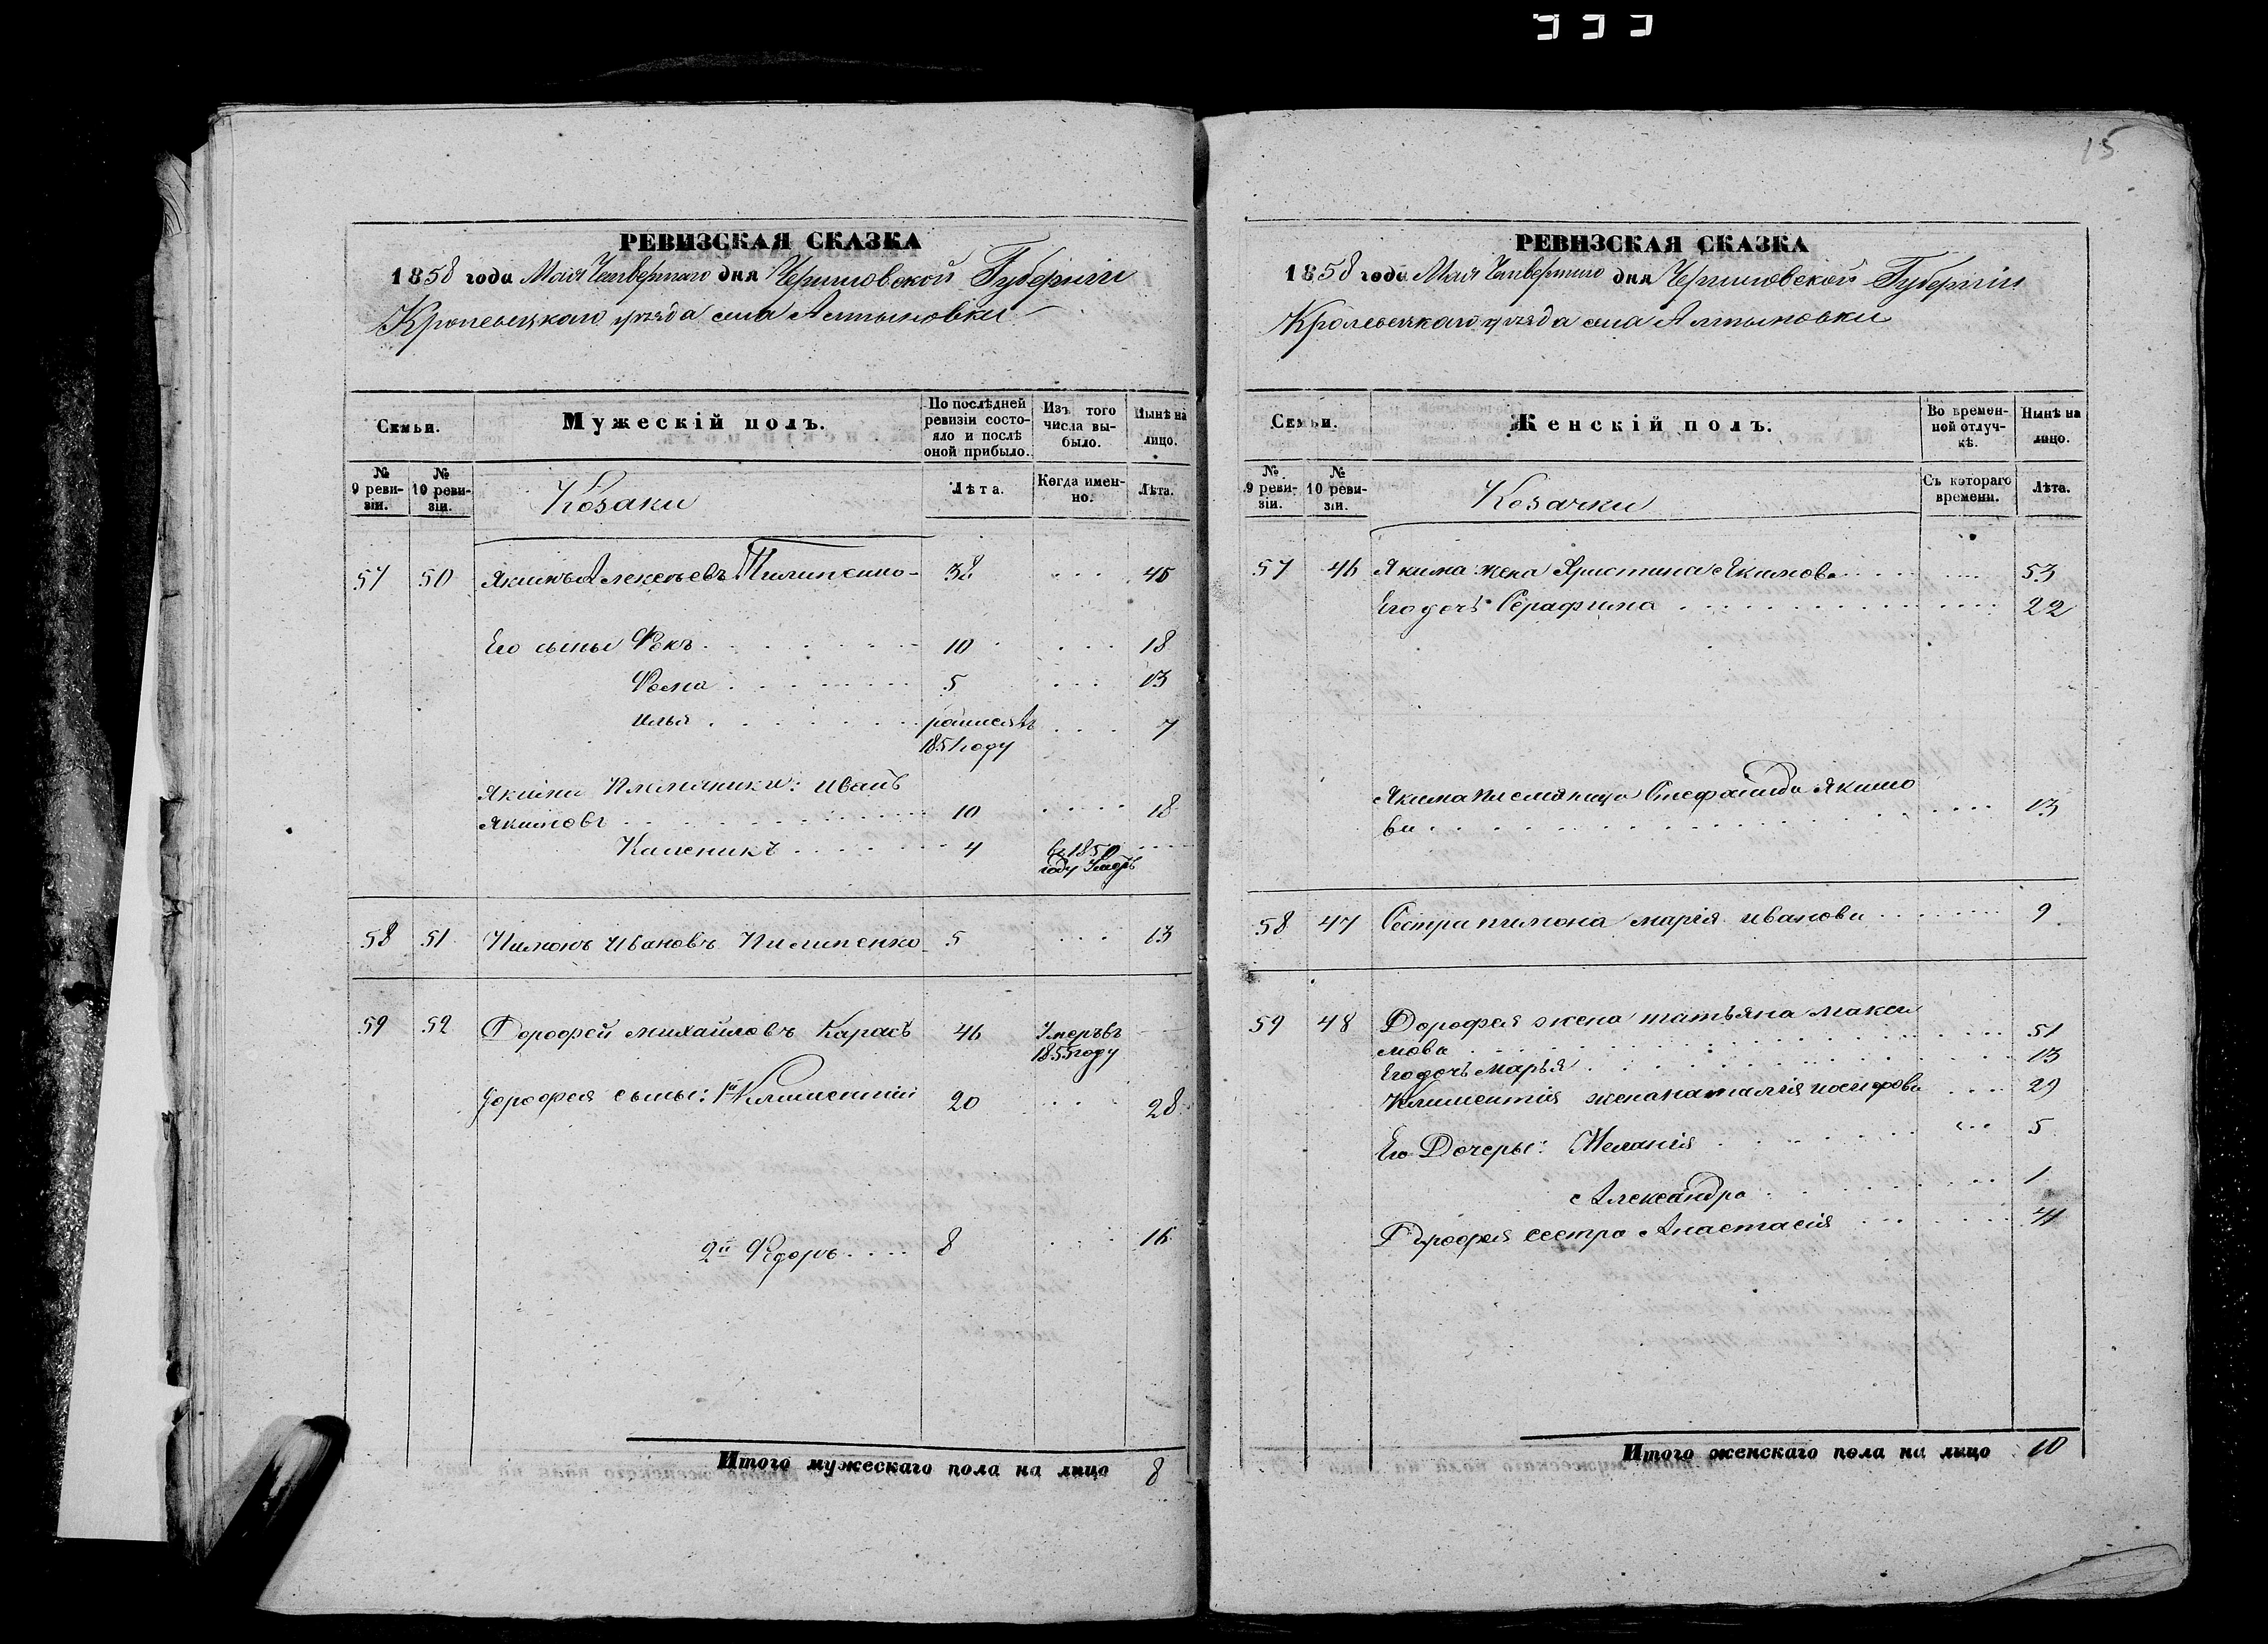 15
РЕВИЗСКАЯ СКАЗКА
1858 года Мая Четвертаго дня Черниговской Губерніи
Кролевецкаго уѣзда села Алтыновки
Семьи.
Мужескій полъ.
По послѣдней ревизіи состояло и послѣ оной прибыло.
Изъ того числа выбыло.
Нынѣ на лицо.
№ 9 ревизіи.
№ 10 ревизіи.
Козаки
Лѣта.
Когда именно.
Лѣта.
57 50 Якимъ Алексѣевъ Пилипенко 38 46
Его сыны Фокъ 10 18
Фома 5 13
Илья 7
1851 году
Якима племяники: Иванъ
Якимовъ 10 18
Каленикъ 4 въ 185
году
58 51 Пимонъ Ивановъ Пилипенко 5 13
59 52 Дорофей Михайловъ Карась 46 Умеръ въ
1855 году
Дорофея сыны: 1й Климентій 20 28
2й Федоръ 8 16
Итого мужескаго пола на лицо 8
РЕВИЗСКАЯ СКАЗКА
1858 года Мая Четвертаго дня Черниговской Губерніи
Кролевецкаго уѣзда села Алтыновки
Семьи.
Женскій полъ.
Во временной отлучкѣ.
Нынѣ на лицо.
№ 9 ревизіи.
№ 10 ревизіи.
Козачки
Съ котораго времени.
Лѣта.
57 46 Якима жена Христина Якимова 53
Его дочь Серафима 22
Якима племяница Стефанида Якимо
ва 13
58 47 Сестра пимона марія иванова 9
59 48 Дорофея жена татьяна макси
мова 51
Его дочь Марья 13
Климентія жена наталія иосифова 29
Его Дочеры: Меланія 5
Александра 1
Дорофея сестра Анастасія 41
Итого женскаго пола на лицо 10